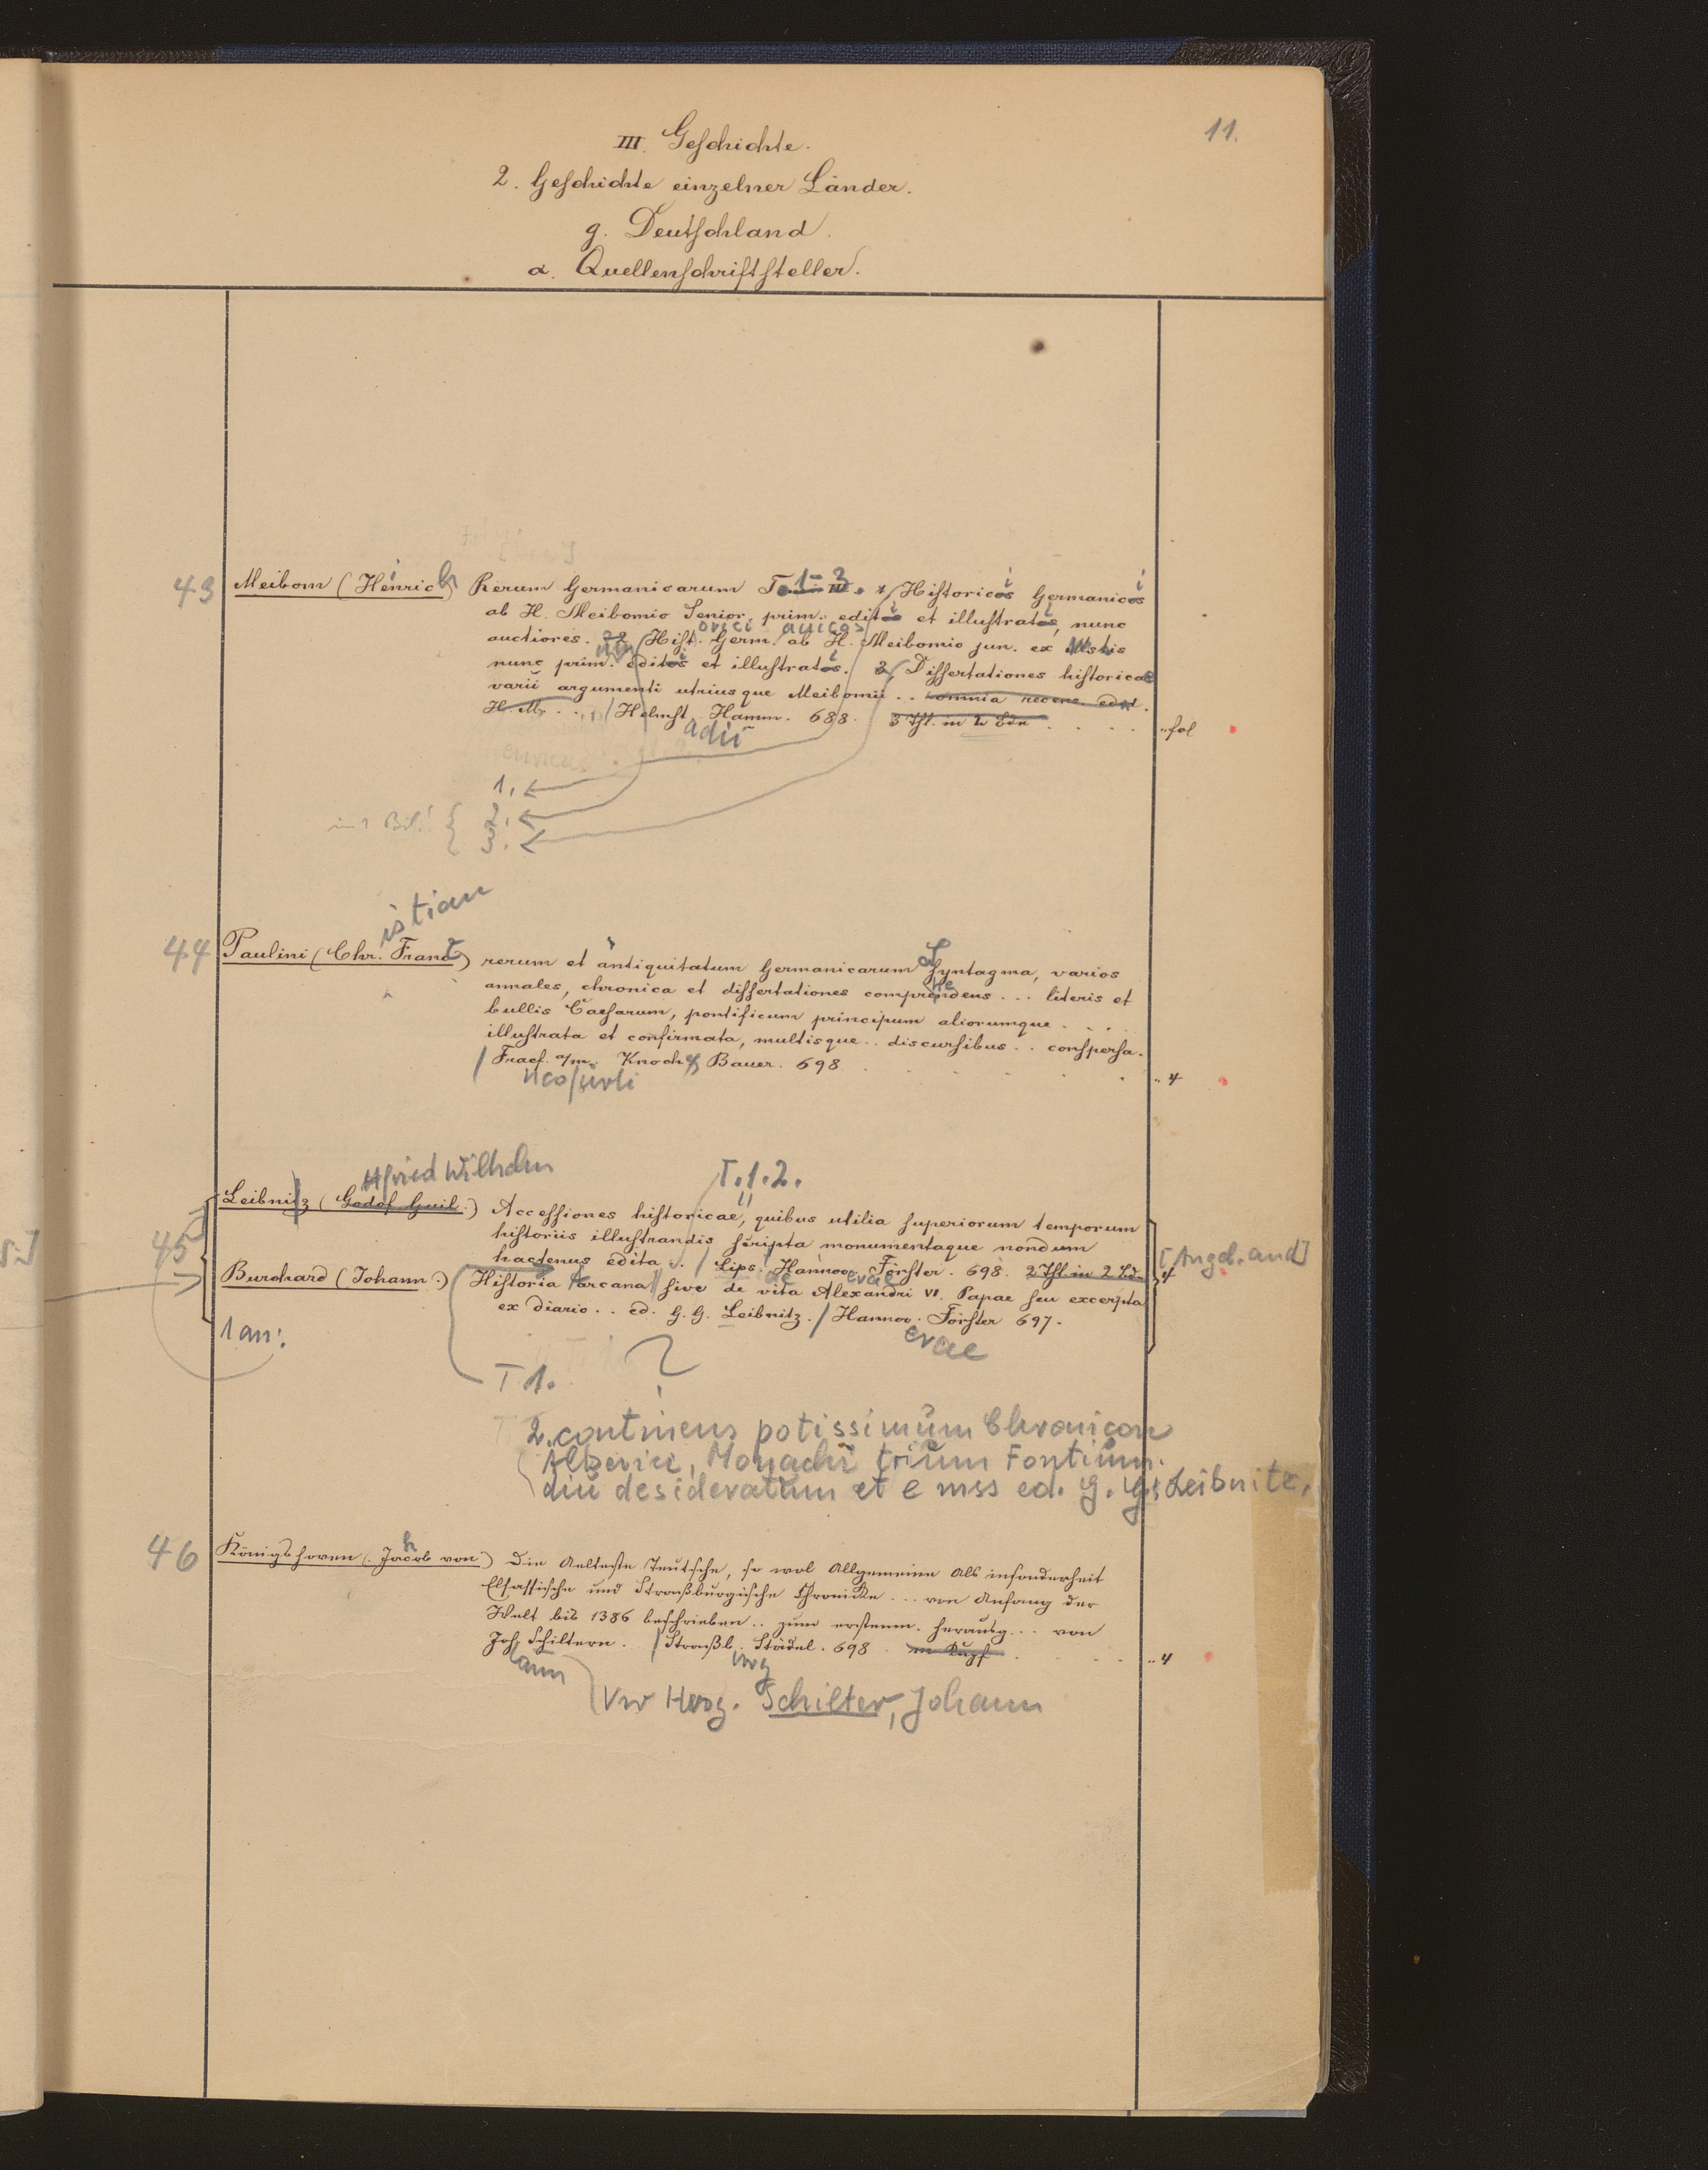 11.
III. Geschichte.
2. Geschichte einzelner Länder.
g. Deutschland.
α. Quellenschriftsteller.
43 Meibom (Henrich) Rerum Germanicarum T. 1-3. 1/ Historicos Germanicos
ab H. Meibomio Senior. prim. editos et illustratos, nunc
auctiores. 2/ Hist. Germ. ab H. Meibomio jun. ex
orici anicos
nunc prim. editos et illustratos. 3/ Dissertationes historicae
varii argumenti utriusque Meibomii .. omnia recens. ed.
H. M. .. / Helmst. Hamm. 688. 3 Thl. in 2 Bdn . . . . .. fol
adii
1.
2.
3.
istian
44 Paulini (Chr. Franc) rerum et antiquitatum Germanicarum Syntagma, varios
annales, chronica et dissertationes comprehendens ... literis et
bullis Caesarum, pontificum principum aliorumque . . . .
illustrata et confirmata, multisque .. discursibus .. conspersa.
/ Fracf. a/m. Knoch & Bauer. 698 . . . . .. 4
ncofurti
ttfried Wilhelm
T. 1. 2.
45 Leibnitz (Godof. Guil.) Accessiones historicae, quibus utilia superiorum temporum
historiis illustrandis scripta monumentaque nondum
hactenus edita .. / Lips. Hannov. Förster. 698. 2 Thl. in 2 Bdn .. 4
[Angeb. and]
Burchard (Johann.) Historia arcana sive de vita Alexandri VI. Papae seu excerpta
ex diario .. ed. G. G. Leibnitz. / Hannov. Förster 697.
evae
1 an:
T 1. ?
2. continens potissimum Chronicon
Alberici, Monachi trium Fontium.
diu desideratum et e mss ed. G. G. Leibnitz.
46 Königshoven (Jacob von) Die Aelteste Teutsche, so wol Allgemeine Als insonderheit
Elsassische und Straßburgische Chronicke ... von Anfang der
Welt bis 1386 beschrieben .. zum erstenm. herausg ... von
Joh. Schiltern. / Straßb. Städel. 698 . m Kupf . . . . .. 4
ann
urg
Vw Hersg. Schilter, Johann